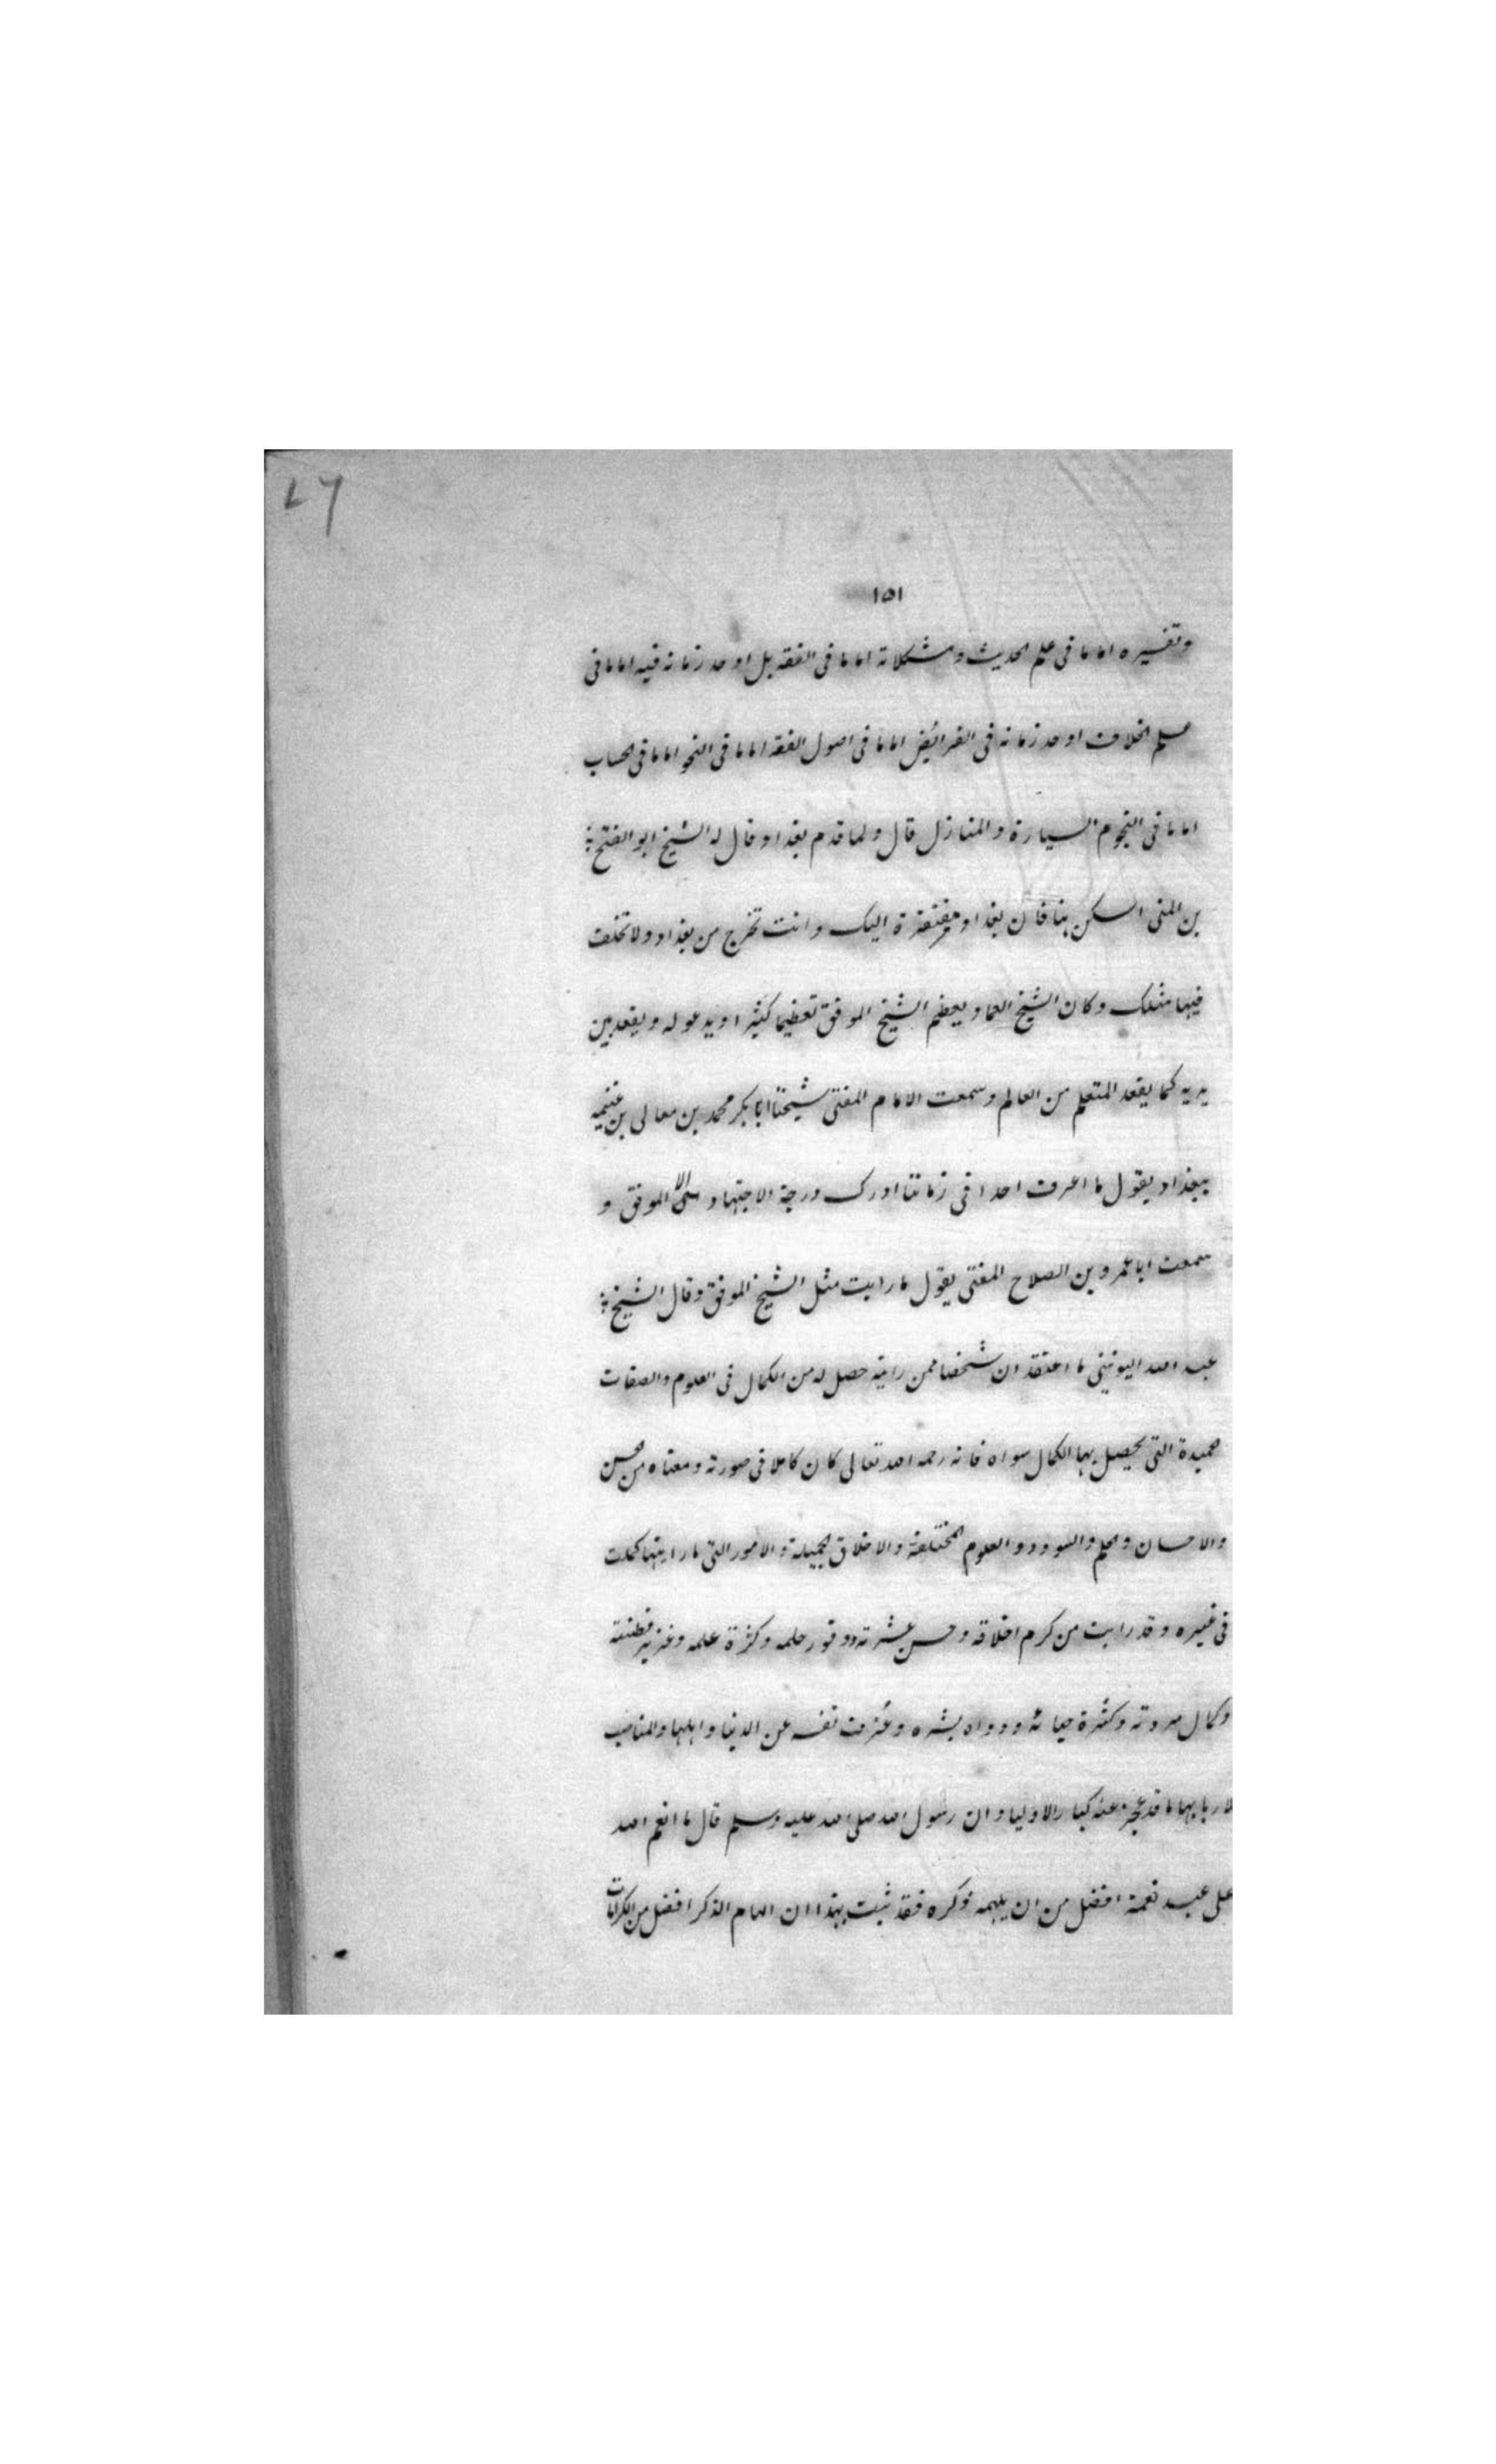 ٧٦
١٥١
وتفسيره اماما فى علم الحديث ومشكلاته اماما فى الفقه بل اوحد زمانه فيه اماما فى
علم الخلاف اوحد زمانه فى الفرائض اماما فى اصول الفقه اماما فى النحو اماما فى الحساب
اماما فى النجوم السيارة والمنازل قال ولما قدم بغداد قال له الشيخ ابو الفتح
بن المنى اسكن هنا فان بغداد مفتقرة اليك وانت تخرج من بغداد ولا تخلف
فيها مثلك وكان الشيخ العماد يعظم الشيخ الموفق تعظيما كثيرا ويدعو له ويقعد بين
يديه كما يقعد المتعلم من العالم وسمعت الامام المفتى شيخنا ابا بكر محمد بن معالى بن غنيمه
ببغداد يقول ما اعرف احدا فى زماننا ادرك درجة الاجتهاد الا الموفق و
سمعت ابا عمرو بن الصلاح المفتى يقول ما رايت مثل الشيخ الموفق وقال الشيخ
عبد الله اليونينى ما اعتقد ان شخصا ممن رايته حصل له من الكمال فى العلوم والصفات
حميدة التى يحصل بها الكمال سواه فانه رحمه الله تعالى كان كاملا فى صورته ومعناه من حسن
والاحسان والحلم والسودد والعلوم المختلفة والاخلاق الجميلة والامور التى ما رايتها كملت
فى غيره وقد رايت من كرم اخلاقه وحسن عشرته ووفور حلمه وكثرة علمه وغزير فطنته
وكمال مروته وكثرة حيائه ودوام بشره وعزف نفسه عن الدنيا واهلها والمناصب
لاربابها ما قد عجز عنه كبار الاولياء وان رسول الله صلى الله عليه وسلم قال ما انعم الله
على عبد نعمة افضل من ان يلهمه ذكره فقد ثبت بهذا ان الهام الذكر افضل من الكرامات